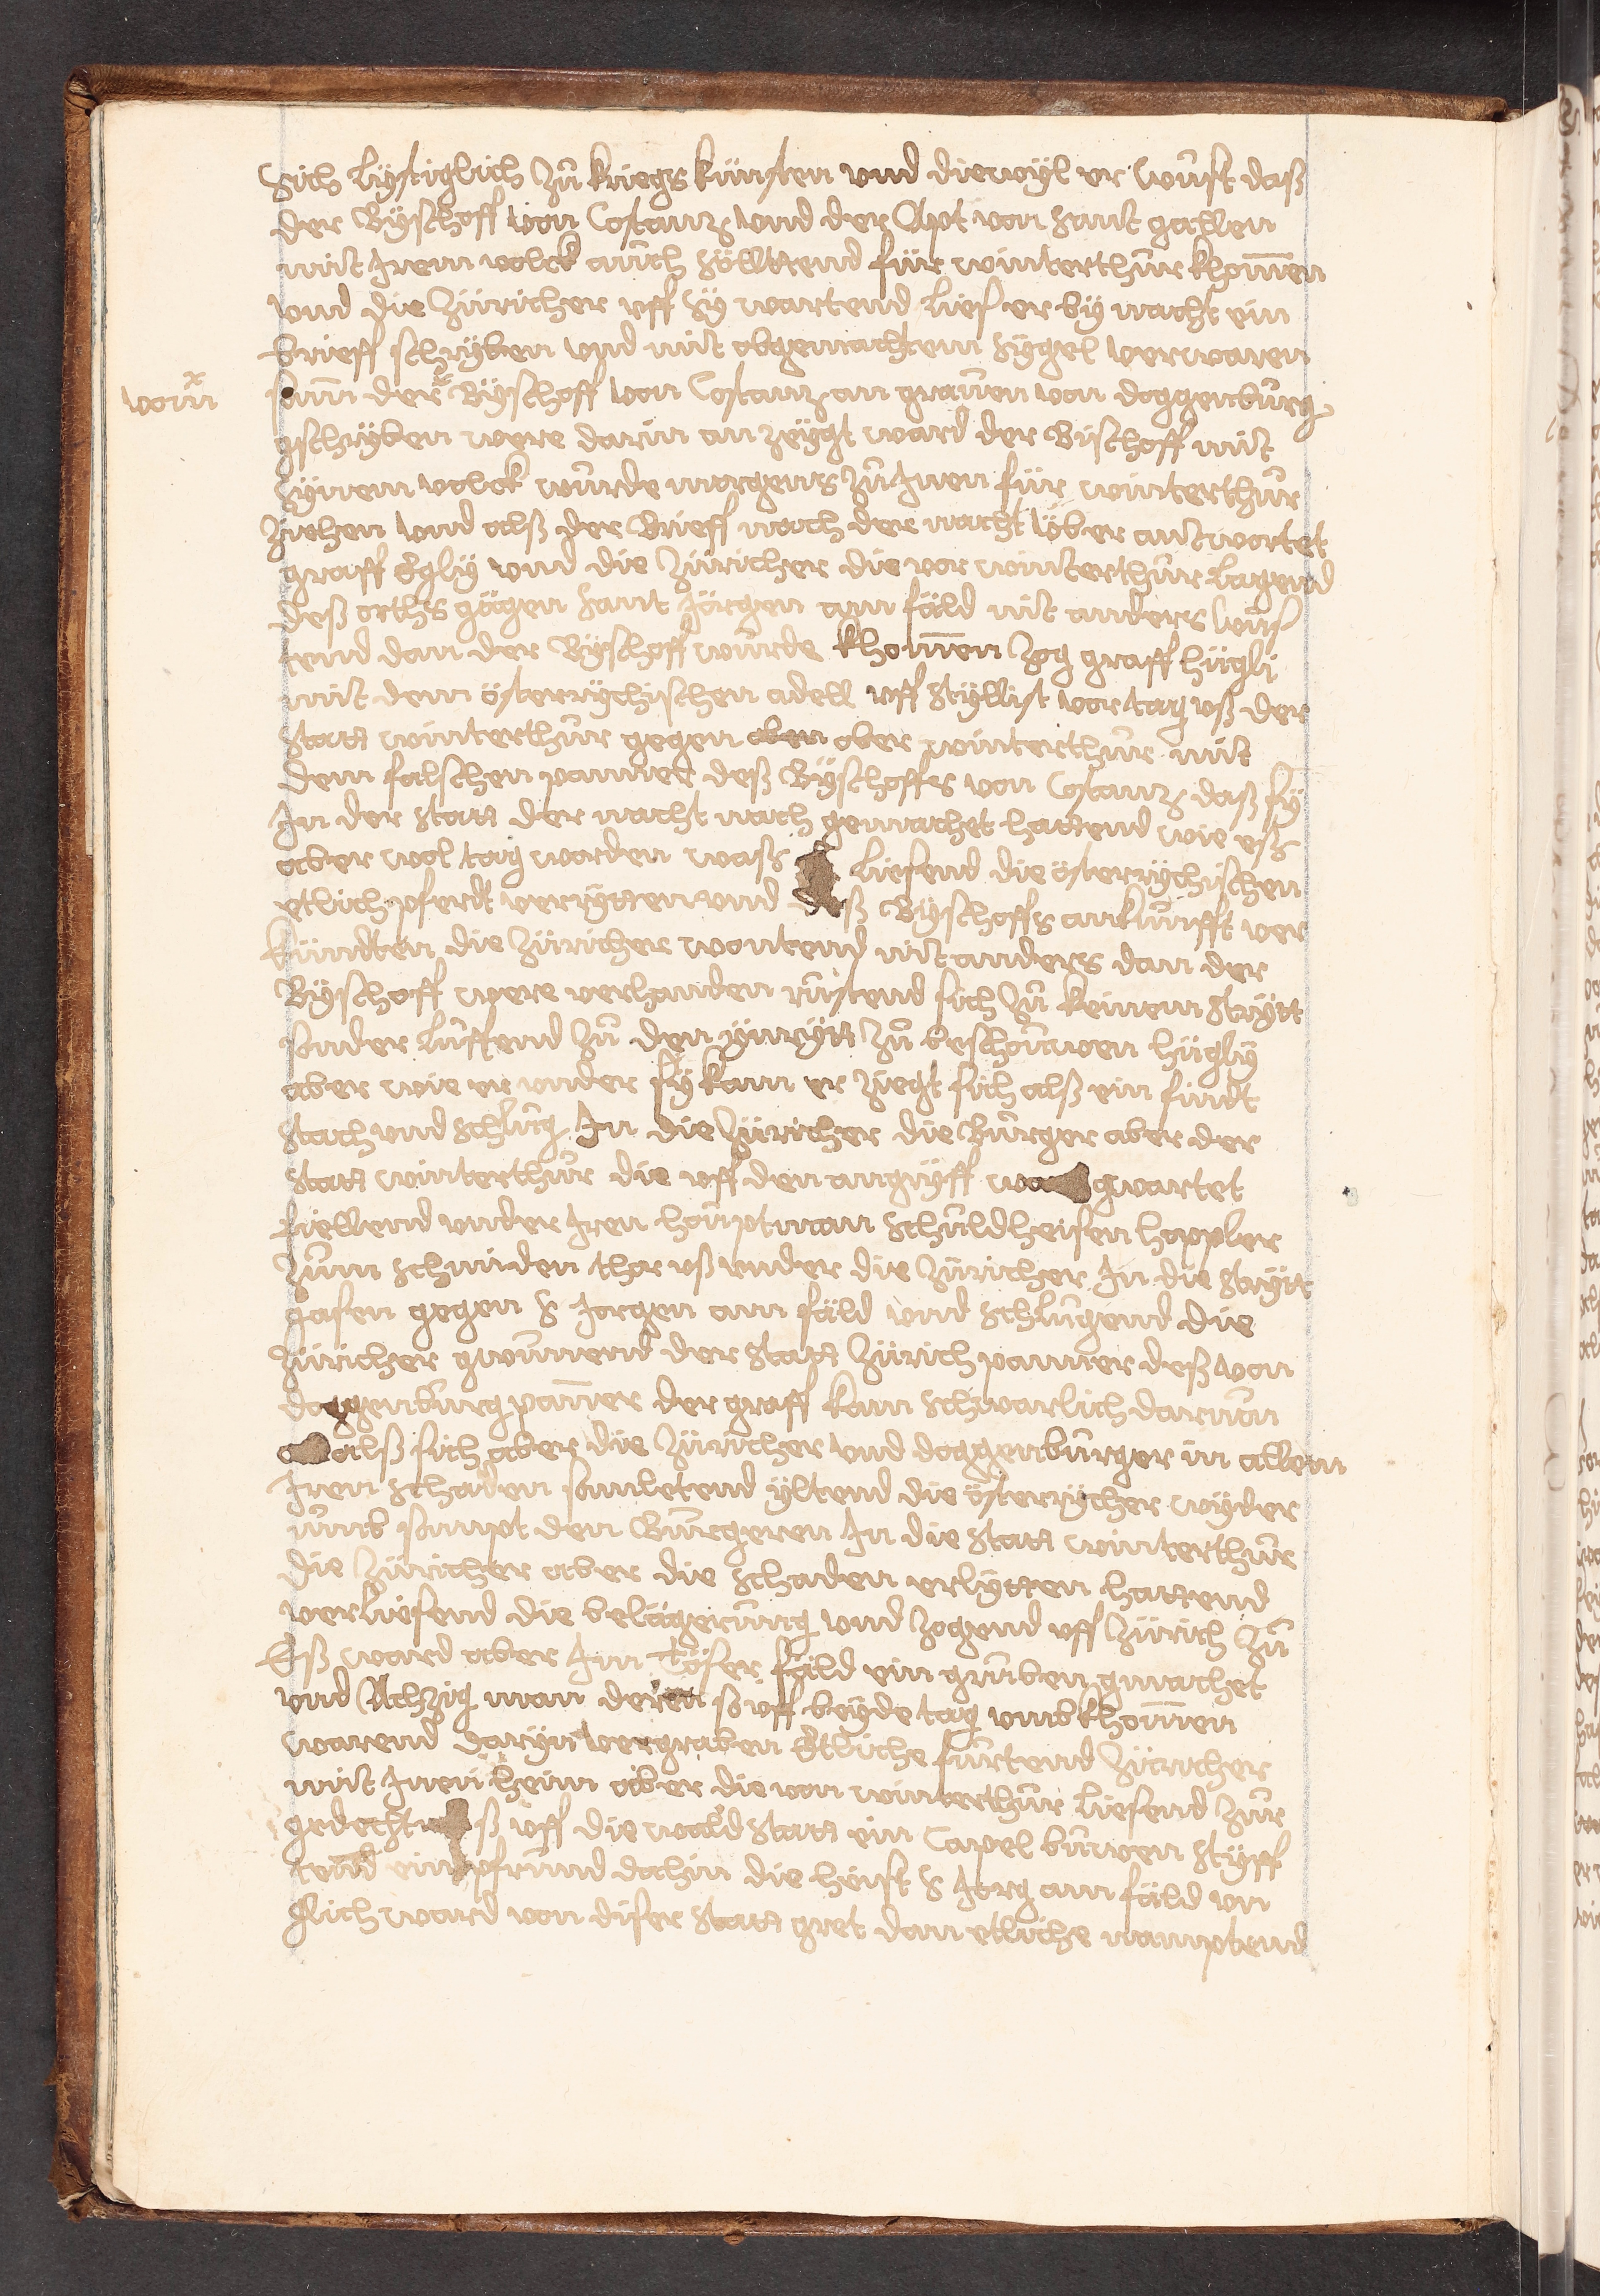 Sich Lystiglich Zů kriegs künsten vnd diewyl er wůst daß
der Byschoff von Costanz vnd der Apt von Sant gallen
mit Irem volck aůch Sölltend für winterthůr khom̄en
vnd die Züricher vff Sy wartend Lies er by nacht ein
brieff schryben vnd mit obgemachtem Sygel verwaren
vom̄
sam̄ der Byschoff von Costanz an grauen von doggenbůrg
gschryben were darin an zeygt ward der Bischoff mit
Synem volck wůrde morgens Zů Inen für winterthůr
Ziehen vnd alß der Brieff nach der nacht über antwortet
graff Egly vnd die Züricher die vor winterthůr Lagend
deß orths gägen Sant Jörgen am fäld nit anders wůs
tend dan der Byschoff wůrde khom̄en Zog graff Hügli
mit dem österrychischen adell vff Styllist vor tag vß der
Statt winterthůr gegen aben ober winterthůr mit
dem falschen panner deß Byschoffs von Costanz daß sy
In der Statt der nacht nach gemachet hattend wie eß
aber wol tag warden waß Liesend die österrychischen
etlich pferdt verrytten vnd deß Byschoffs ankůnfft ver
kündten die Züricher wontend nit anders dan der
Byschoff were verhanden růstend sich Zů keinem Strytt
sonder Lůffend Zů den ynrytt Zů beschouwen Hügly
aber wie er vnder sy kam er Ziegt sich alß ein findt
Stach vnd Schlůg In die Züricher die Bůrger aber der
Statt winterthůr die vff den angryff gwartet
fiellend vnder Iren hoůptman Schůldheisen hoppler
Zům Schmiden thor vß vnder die Züricher In die Strytt
gasen gegen S Jorgen am fäld vnd Schlůgend die
Züricher gwůnnend der Statt Zürich panner deß von
doggenbůrg pan̄er der graff kam Schwarlich daruon
alß sich aber die Züricher vnd doggenbůrger in allem
Iren Schaden samletend yltend die österrycher wyder
vmb sampt den Bůrgeren In die Statt winterthůr
die Züricher aber die Schaden erlytten hattend
verliesend die belägerůng vnd Zogend vff Zürich Zů
Eß ward aber Im Töser fäld ein grůben gmachet
vnd Achzig man deren so vff beyde tag vmbkhom̄en
warend daryn vergraben Etliche fůrtend Züricher
mit Inen heim aber die von winterthůr Liesend Zůr
gedechtnůß vff die wald Statt ein Capel bůwen Styff
tend ein pfrůnd dahin die heist S Jorg am fäld vn
glich ward von diser Statt gret dan etliche namptend